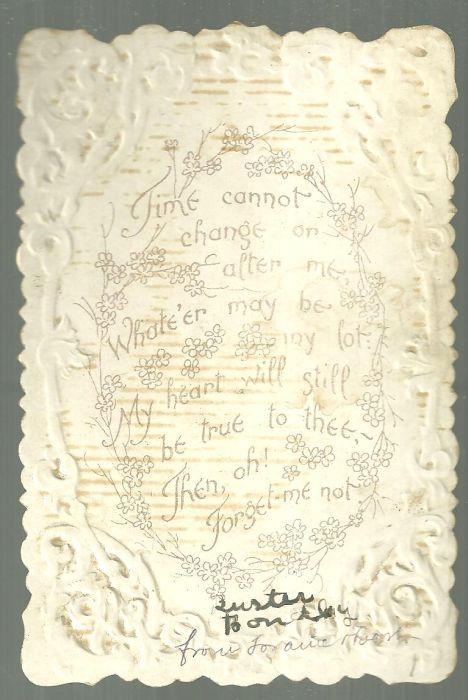 Time cannot
change or
alter me,
Whate'er may be
my lot:
My heart will still
be true to thee,~
Then, oh!
Forget-me not
from